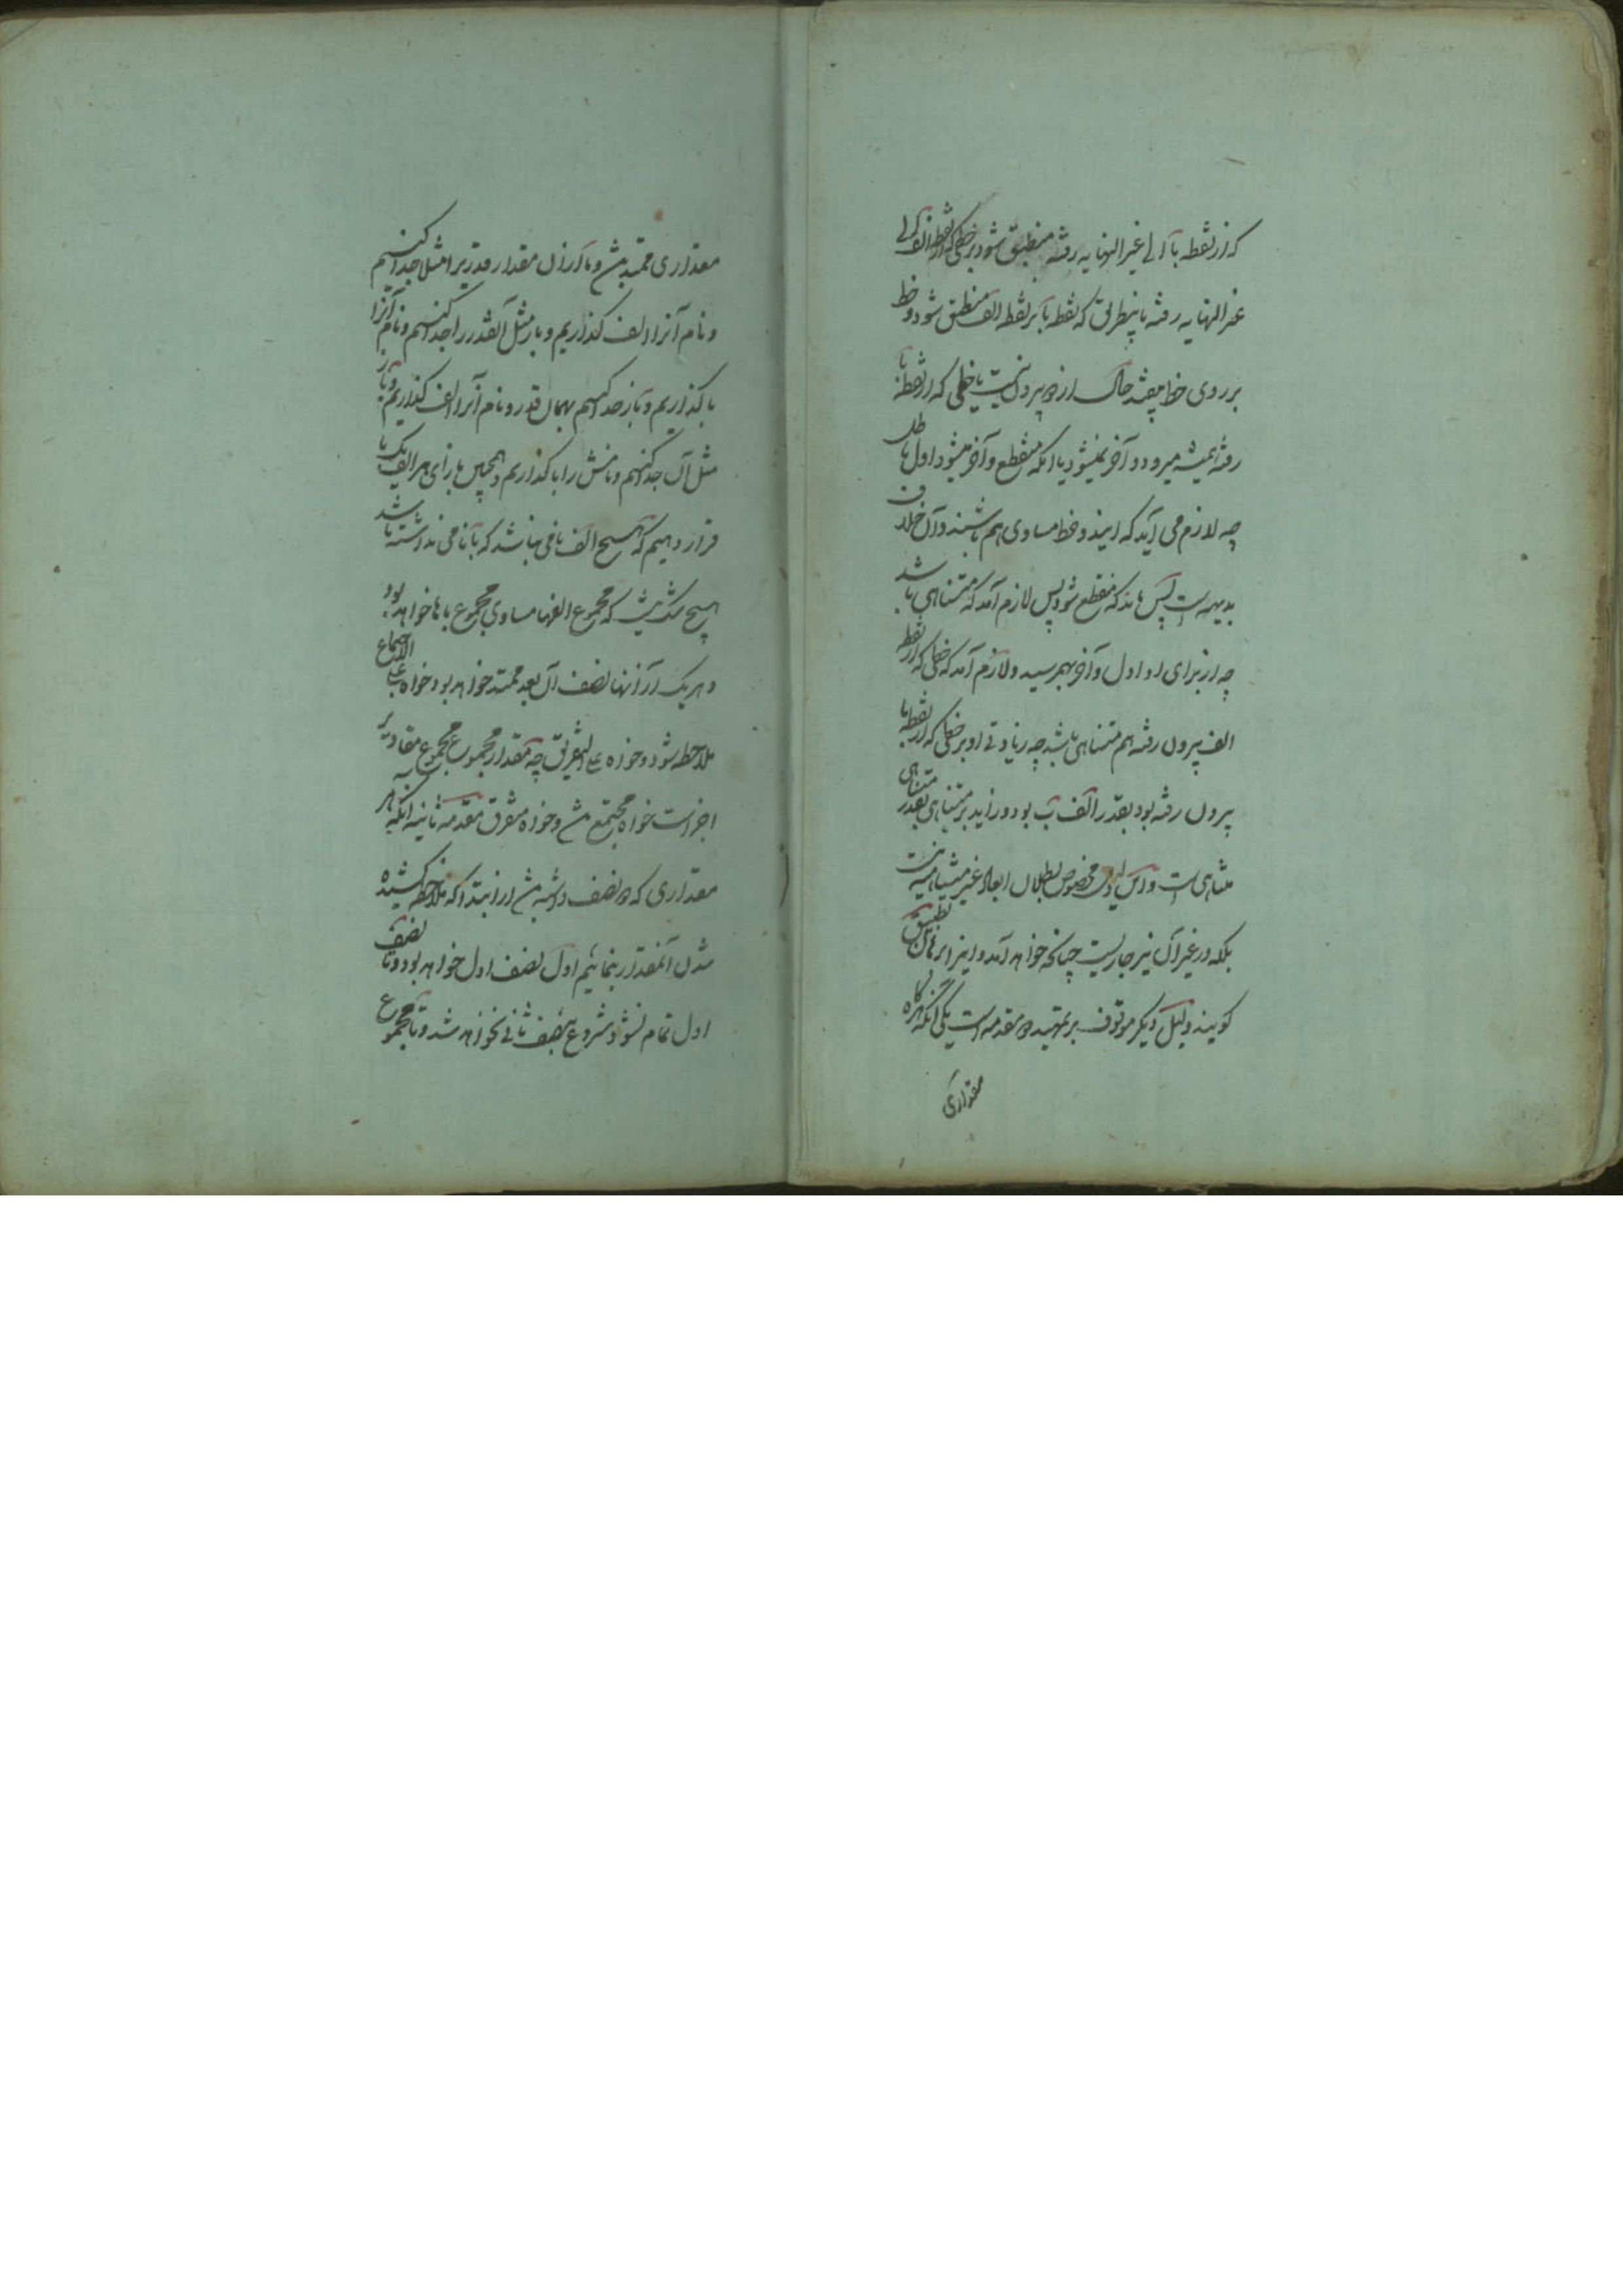 که از نقطه با الی غیر النهایه رفته منطبق شود بر خطی که از نقطه الف الی
غیر النهایه رفته باینطریق که نقطه با بر نقطه الف منطبق شود و خط
بر روی خط بیفتد حال از دو بیرون نیست یا خطی که از نقطه با
رفته همیشه میرود و آخر نمیشود یا آنکه منقطع و آخر میشود اول باطل
چه لازم می آید که ایندو خط مساوی هم باشند و آن خلاف
بدیهه است پس ماند که منقطع شود پس لازم آمد که متناهی باشد
چه از برای او اول و آخر بهم رسید و لازم آمد که خطی که از نقطه
الف بیرون رفته هم متناهی باشد چه زیادتی او بر خطی که از نقطه با
بیرون رفته بود بقدر الف ب بود و زاید بر متناهی بقدر متناهی
متناهی است و این دلیل مخصوص بطلان ابعاد غیر متناهیه نیست
بلکه در غیر آن نیز جاریست چنانکه خواهد آمد و اینرا برهان تطبیق
گویند دلیل دیگر موقوف بر تمهید دو مقدمه است یکی آنکه هرگاه
مقداری
مقداری ممتد باشد و ما از آن مقدار قدریرا مثلا جدا کنیم
و نام آنرا الف گذاریم و باز مثل آنقدر را جدا کنیم و نام آنرا
با گذاریم و باز جدا کنیم بهمان قدر و نام آنرا الف گذاریم و باز
مثل آن جدا کنیم و نامش را با گذاریم و همچنین بازای هر الف یک با
قرار دهیم که هیچ الف نامی نباشد که با نامی نداشته باشد
هیچ شک نیست که مجموع الفها مساوی مجموع باها خواهد بود
و هر یک از آنها نصف آن بعد ممتد خواهد بود خواه علی الاجتماع
ملاحظه شود و خواه علی التفریق چه مقدار مجموع مجموع مقادیر
اجزاست خواه مجتمع باشد و خواه متفرق مقدمه ثانیه آنکه هر
مقداری که دو نصف داشته باشد از ابتدا که ملاحظه کشیده
شدن آنمقدار بنمائیم اول نصف اول خواهد بود و تا نصف
اول تمام نشود شروع بنصف ثانی نخواهد شد و تا مجموع